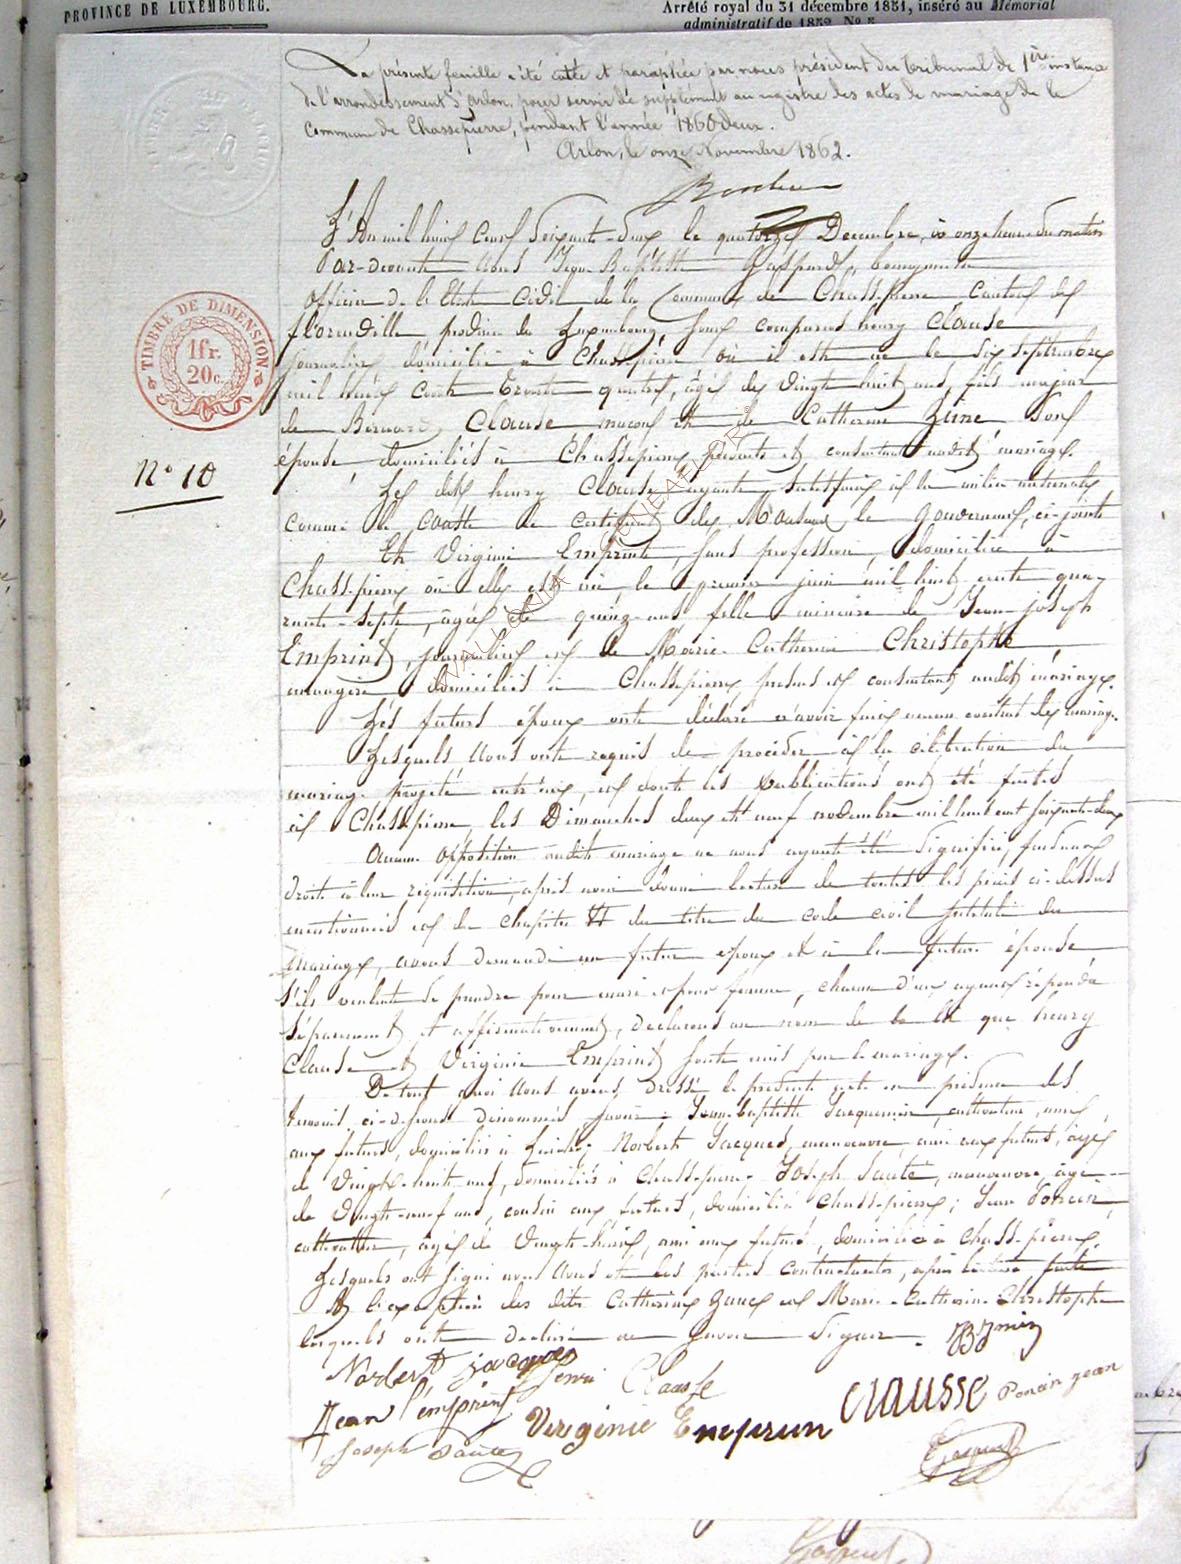 PROVINCE DE LUXEMBOURG.
Arrêté royal du 31 décembre 1851, inséré au Mémorial
administratif de 1852, No 5
La présente feuille a été cotée et paraphée par nous président du tribunal de 1ère instance
de l'arrondissement d'Arlon, pour servir de supplément au registre des actes de mariage de la
Commune de Chassepierre, pendant l'année 1860 deux.
Arlon, le onze Novembre 1862.
L'An mil huit Cent Soixante-deux le quatorze Decembre, à onze heures du matin
Par-devant Nous Jean Baptiste Gaspard, bourgmestre
Officier de l'Etat Civil de la Commune de Chassepierre Canton de
florenville province de Luxembourg, sont comparus henry Clause
journalier domicilié à Chassepierre où il est né le six septembre
mil huit cent trente quatre, âgé de vingt huit ans, fils majeur
de Bernard Clause maçon et de Catherine son
épouse domiciliés à Chassepierre, présents et consentant audit mariage.
Le dit henry Clause ayant satisfait à la milice nationale
comme le constate le certificat de Monsieur le Gouverneur, ci-joint
Et Virginie Emprint, sans profession, domiciliée à
Chassepierre où elle est née, le premier juin mil huit cent qua-
rante-sept, âgée de quinze ans fille mineure de Jean joseph
Emprint, journalier et de Marie Catherine Christophe
menagère domiciliés à Chassepierre, présents et consentant audit mariage.
Les futurs époux ont déclaré n'avoir fait aucun contrat de mariage.
Lesquels nous ont requis de procéder à la célébration du
mariage projeté entr'eux, et dont les publications ont été faites
à Chassepierre, les Dimanches deux et neuf novembre mil huit cent soixante-deux
Aucune opposition audit mariage ne nous ayant été signifiée, faisant
droit à leur réquisition, après avoir donné lecture de toutes les pièces ci-dessus
mentionnées et du chapitre VI du titre du code civil intitulé du
Mariage, avons demandé au futur époux et à la future épouse
s'ils veulent se prendre pour mari et pour femme, chacun d'eux ayant répondu
séparément et affirmativement, déclarons au nom de la loi que henry
Clause et Virginie Emprint sont unis par le mariage.
De tout quoi nous avons dressé le présent acte en présence des
temoins ci-dessous dénommés, savoir: Jean-baptiste Jacquemin, cultivateur, ami
aux futurs, domicilié à Norbert Jacques, manoeuvre, ami aux futurs, âgé
de vingt-huit ans, domicilié à Chassepierre Joseph Sauté, manoeuvre, âgé
de vingt-neuf ans, cousin aux futurs, domicilié Chassepierre; Jean Poncin,
cultivateur, âgé de vingt-huit, ami aux futurs, domicilié à Chassepierre,
Lesquels ont signé avec nous et les parties contractantes, après lecture faite
à l'exception des dites Catherine et Marie-Catherine Christophe
lesquels ont declaré ne savoir signer.
TIMBRE DE DIMENSION
1fr.
20c.
No 10
WALLONIA CONVEAFLOR
Norbert jacques henri Clausse
Jean l'emprint Virginie Emprun Clausse Poncin jean
Joseph Sauté
Gaspard